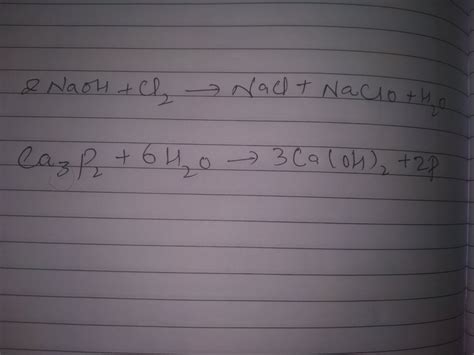 2NaOH + Cl₂ → NaCl + NaClO + H₂O
Ca₃P₂ + 6H₂O → 3Ca(OH)₂ + 2P